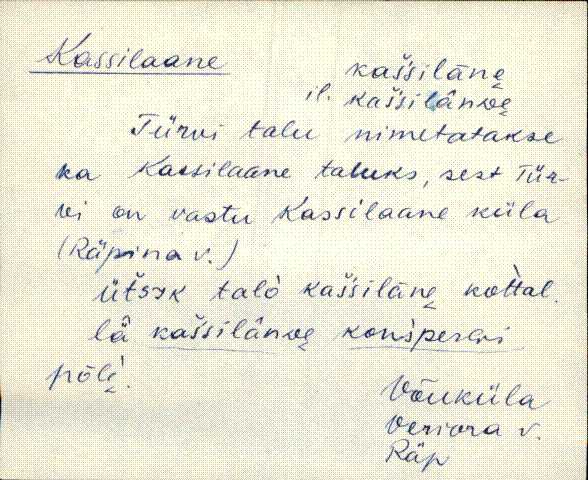 Kassilaane
kaššilāne̬
il. kaššilānɷe̬
Türvi talu nimetatakse
ka Kassilaane taluks, sest Tür-
vi on vastu Kassilaane küla
(Räpina v.)
ütšɪk talò kaššilāne̬
lā kaššilānɷe̬
Võuküla
Veriora v.
Räp